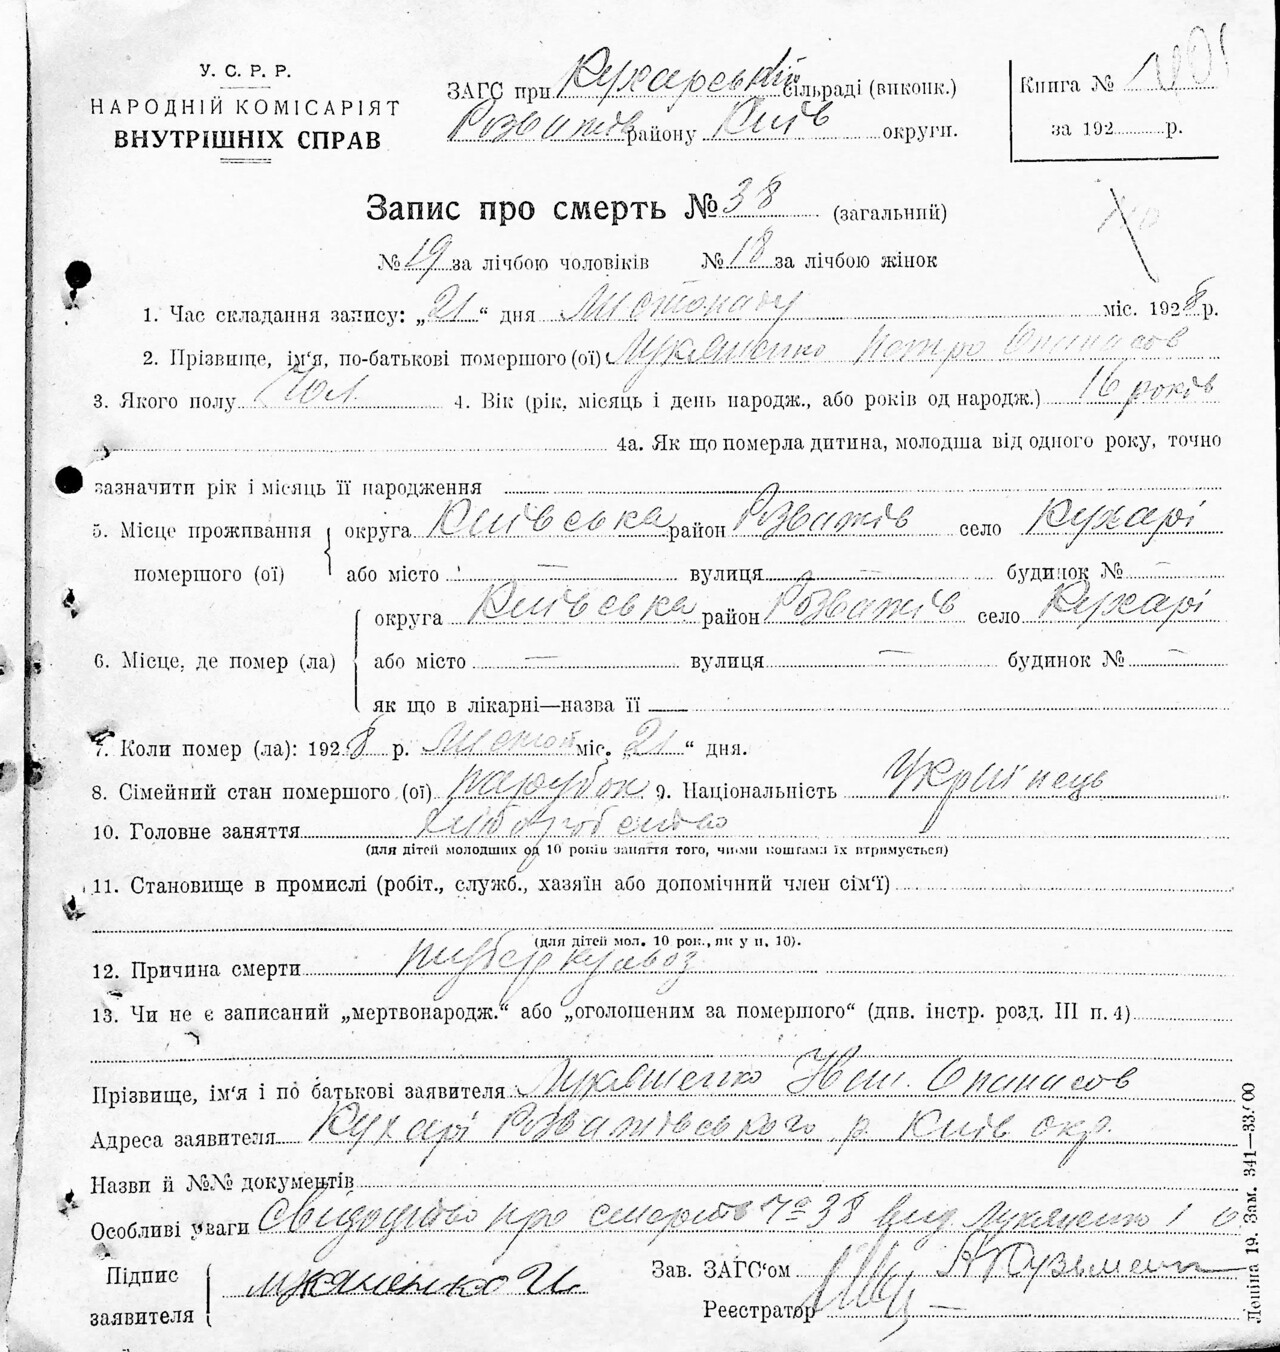 У. С. Р. Р.
НАРОДНІЙ КОМІСАРІЯТ
ВНУТРІШНІХ СПРАВ
ЗАГС при Кухарській сільраді (виконк.)
Розважів району Київ округи.
Книга №
за 192 р.
Запис про смерть № 38 (загальний)
№ 19 за лічбою чоловіків № 18 за лічбою жінок
1. Час складання запису: „21“ дня Листопаду міс. 1928 р.
2. Прізвище, ім‘я, по-батькові помершого (ої) Лукяненко Петро Опанасов
3. Якого полу Чол. 4. Вік (рік, місяць і день народж., або років од народж.) 16 років
4а. Як що померла дитина, молодша від одного року, точно
зазначити рік і місяць її народження
5. Місце проживання помершого (ої) округа Київська район Розважів село Кухарі
або місто — вулиця — будинок № —
6. Місце, де помер (ла) округа Київська район Розважів село Кухарі
або місто — вулиця — будинок № —
як що в лікарні—назва її
7. Коли помер (ла): 1928 р. Листоп міс. 21“ дня.
8. Сімейний стан помершого (ої) парубок 9. Національність Украінець
10. Головне заняття хліборобство
(для дітей молодших од 10 років заняття того, чиїми коштами їх втримується)
11. Становище в промислі (робіт., служб., хазяїн або допомічний член сім‘ї)
(для дітей мол. 10 рок., як у п. 10).
12. Причина смерти туберкульоз
13. Чи не є записаний „мертвонародж.“ або „оголошеним за помершого“ (див. інстр. розд. III п. 4)
Прізвище, ім‘я і по батькові заявителя Лукяненко Опанасов
Адреса заявителя Кухарі Розважівського р. Київ окр.
Назви й №№ документів
Особливі уваги Свідоцтво про смерть № 38 Лукяненко І О
Підпис заявителя Лукяненко И.
Зав. ЗАГС‘ом Кузьменко
Реестратор
Леніна 19. Зам. 341—33500